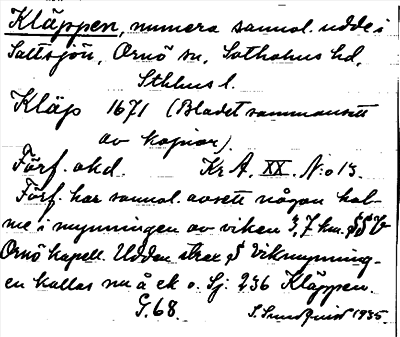 Kläppen, numera sannol. udde i
Saltsjön, Ornö sn, Sotholms hd,
Sthlms l.
Kläp 1671 (Bladet sammansatt
av kopior).
Förf. okd. Kr A. XX. N:o 13.
Förf. har sannol. avsett någon hol-
me i mynningen av viken 3,7 km. SSV
Ornö kapell. Udden strax S vikmynning-
en kallas nu å ek o. Sj: 236 Kläppen.
G.68. S. Sundquist 1935.